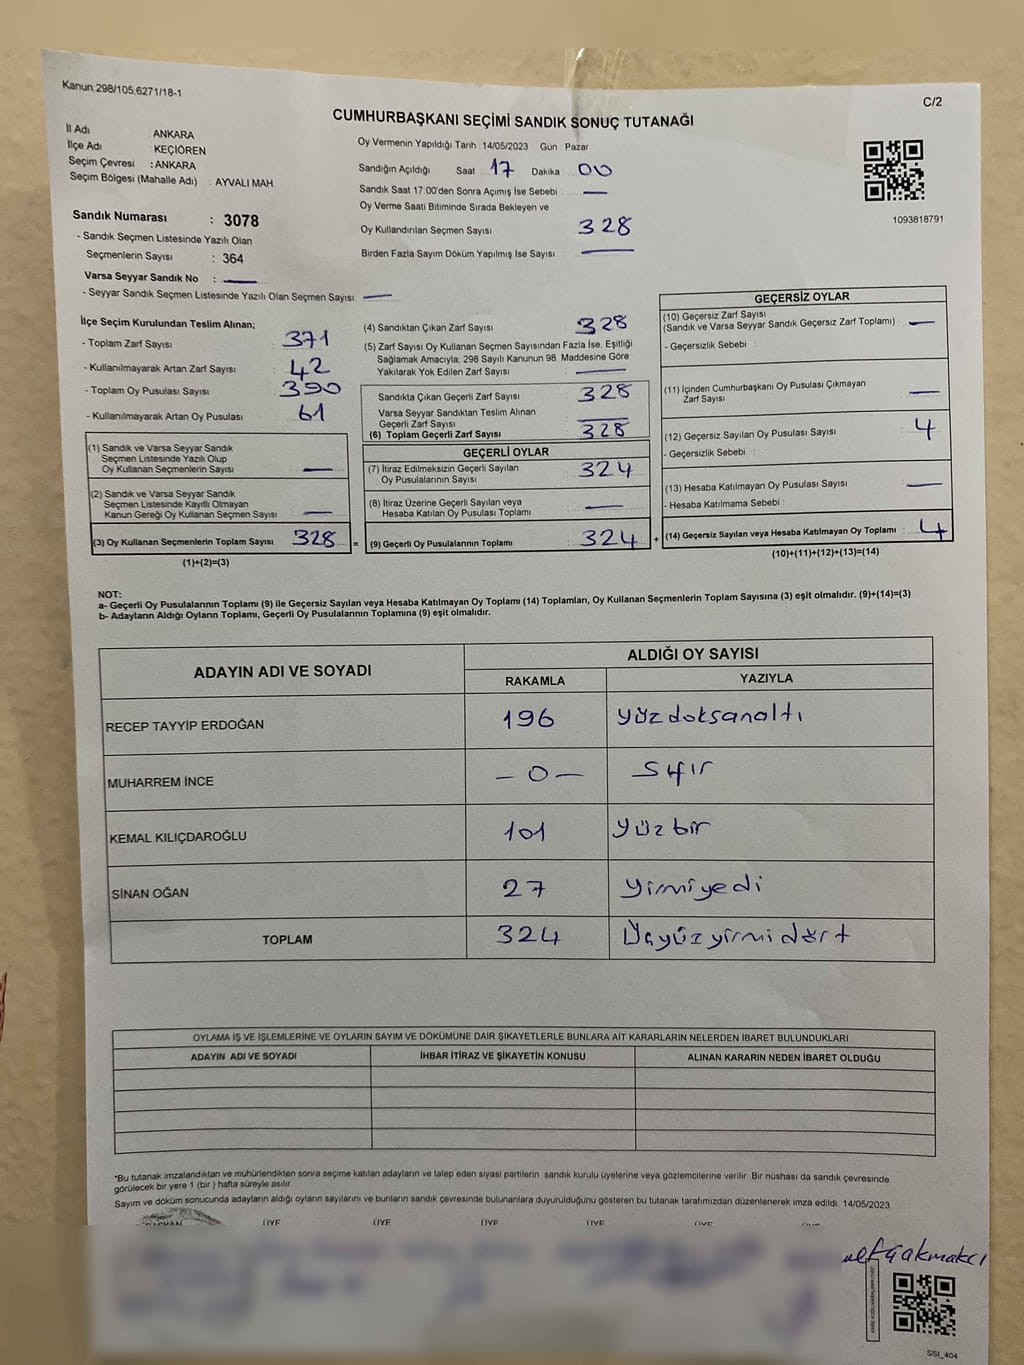 Kanun:298/105,6271/18-1
C/2
CUMHURBAŞKANI SEÇİMİ SANDIK SONUÇ TUTANAĞI
İl Adı : ANKARA
İlçe Adı : KEÇİÖREN
Seçim Çevresi : ANKARA
Seçim Bölgesi (Mahalle Adı) : AYVALI MAH.
Sandık Numarası : 3078
- Sandık Seçmen Listesinde Yazılı Olan
Seçmenlerin Sayısı : 364
Varsa Seyyar Sandık No : —
- Seyyar Sandık Seçmen Listesinde Yazılı Olan Seçmen Sayısı: —
Oy Vermenin Yapıldığı Tarih : 14/05/2023 Gün : Pazar
Sandığın Açıldığı Saat : 17 Dakika : 00
Sandık Saat 17:00'den Sonra Açımış İse Sebebi : —
Oy Verme Saati Bitiminde Sırada Bekleyen ve
Oy Kullandırılan Seçmen Sayısı : 328
Birden Fazla Sayım Döküm Yapılmış İse Sayısı : —
1093818791
İlçe Seçim Kurulundan Teslim Alınan;
- Toplam Zarf Sayısı : 371
- Kullanılmayarak Artan Zarf Sayısı : 42
- Toplam Oy Pusulası Sayısı : 390
- Kullanılmayarak Artan Oy Pusulası : 61
(1) Sandık ve Varsa Seyyar Sandık
Seçmen Listesinde Yazılı Olup
Oy Kullanan Seçmenlerin Sayısı : —
(2) Sandık ve Varsa Seyyar Sandık
Seçmen Listesinde Kayıtlı Olmayan
Kanun Gereği Oy Kullanan Seçmen Sayısı : —
(3) Oy Kullanan Seçmenlerin Toplam Sayısı : 328 =
(1)+(2)=(3)
(4) Sandıktan Çıkan Zarf Sayısı : 328
(5) Zarf Sayısı Oy Kullanan Seçmen Sayısından Fazla İse, Eşitliği
Sağlamak Amacıyla; 298 Sayılı Kanunun 98. Maddesine Göre
Yakılarak Yok Edilen Zarf Sayısı : —
Sandıkta Çıkan Geçerli Zarf Sayısı : 328
Varsa Seyyar Sandıktan Teslim Alınan
Geçerli Zarf Sayısı : —
(6) Toplam Geçerli Zarf Sayısı : 328
GEÇERLİ OYLAR
(7) İtiraz Edilmeksizin Geçerli Sayılan
Oy Pusulalarının Sayısı : 324
(8) İtiraz Üzerine Geçerli Sayılan veya
Hesaba Katılan Oy Pusulası Toplamı : —
(9) Geçerli Oy Pusulalarının Toplamı : 324 +
GEÇERSİZ OYLAR
(10) Geçersiz Zarf Sayısı
(Sandık ve Varsa Seyyar Sandık Geçersiz Zarf Toplamı) : —
- Geçersizlik Sebebi :
(11) İçinden Cumhurbaşkanı Oy Pusulası Çıkmayan
Zarf Sayısı : —
(12) Geçersiz Sayılan Oy Pusulası Sayısı : 4
- Geçersizlik Sebebi :
(13) Hesaba Katılmayan Oy Pusulası Sayısı : —
- Hesaba Katılmama Sebebi :
(14) Geçersiz Sayılan veya Hesaba Katılmayan Oy Toplamı : 4
(10)+(11)+(12)+(13)=(14)
NOT:
a- Geçerli Oy Pusulalarının Toplamı (9) ile Geçersiz Sayılan veya Hesaba Katılmayan Oy Toplamı (14) Toplamları, Oy Kullanan Seçmenlerin Toplam Sayısına (3) eşit olmalıdır. (9)+(14)=(3)
b- Adayların Aldığı Oyların Toplamı, Geçerli Oy Pusulalarının Toplamına (9) eşit olmalıdır.
ADAYIN ADI VE SOYADI
ALDIĞI OY SAYISI
RAKAMLA YAZIYLA
RECEP TAYYİP ERDOĞAN 196 yüzdoksanaltı
MUHARREM İNCE — 0 — Sıfır
KEMAL KILIÇDAROĞLU 101 yüzbir
SİNAN OĞAN 27 yirmiyedi
TOPLAM 324 Üçyüzyirmidört
OYLAMA İŞ VE İŞLEMLERİNE VE OYLARIN SAYIM VE DÖKÜMÜNE DAİR ŞİKAYETLERLE BUNLARA AİT KARARLARIN NELERDEN İBARET BULUNDUKLARI
ADAYIN ADI VE SOYADI İHBAR İTİRAZ VE ŞİKAYETİN KONUSU ALINAN KARARIN NEDEN İBARET OLDUĞU
*Bu tutanak imzalandıktan ve mühürlendikten sonra seçime katılan adayların ve talep eden siyasi partilerin sandık kurulu üyelerine veya gözlemcilerine verilir. Bir nüshası da sandık çevresinde
görülecek bir yere 1 (bir ) hafta süreyle asılır.
Sayım ve döküm sonucunda adayların aldığı oyların sayılarını ve bunların sandık çevresinde bulunanlara duyurulduğunu gösteren bu tutanak tarafımızdan düzenlenerek imza edildi. 14/05/2023
BAŞKAN ÜYE ÜYE ÜYE ÜYE ÜYE ÜYE
SSI_404